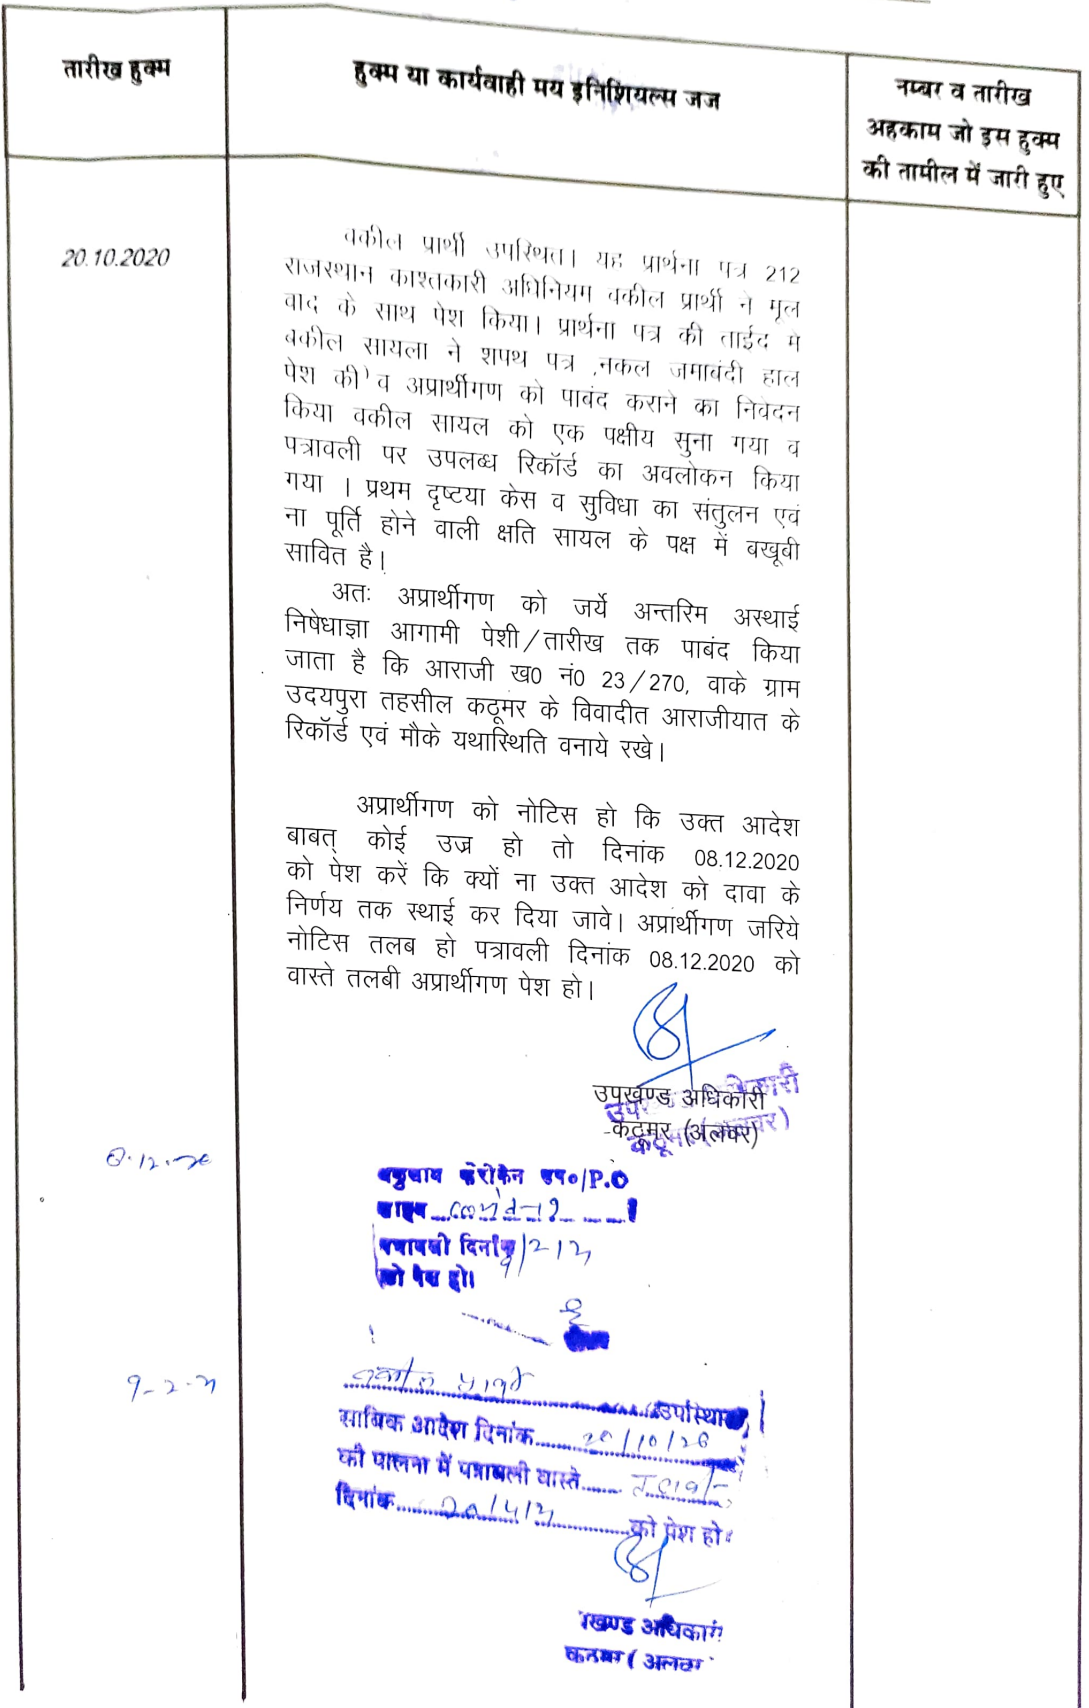 तारीख हुक्म
हुक्म या कार्यवाही मय इनिशियल्स जज
नम्बर व तारीख
अहकाम जो इस हुक्म
की तामील में जारी हुए
20.10.2020
वकील प्रार्थी उपस्थित। यह प्रार्थना पत्र 212
राजस्थान काश्तकारी अधिनियम वकील प्रार्थी ने मूल
वाद के साथ पेश किया। प्रार्थना पत्र की ताईद मे
वकील सायला ने शपथ पत्र ,नकल जमाबंदी हाल
पेश की व अप्रार्थीगण को पाबंद कराने का निवेदन
किया वकील सायल को एक पक्षीय सुना गया व
पत्रावली पर उपलब्ध रिकॉर्ड का अवलोकन किया
गया । प्रथम दृष्टया केस व सुविधा का संतुलन एवं
ना पूर्ति होने वाली क्षति सायल के पक्ष में बखूबी
सावित है।
अतः अप्रार्थीगण को जर्ये अन्तरिम अस्थाई
निषेधाज्ञा आगामी पेशी/तारीख तक पाबंद किया
जाता है कि आराजी ख0 नं0 23/270, वाके ग्राम
उदयपुरा तहसील कठूमर के विवादीत आराजीयात के
रिकॉर्ड एवं मौके यथास्थिति वनाये रखे।
अप्रार्थीगण को नोटिस हो कि उक्त आदेश
बाबत् कोई उज्र हो तो दिनांक 08.12.2020
को पेश करें कि क्यों ना उक्त आदेश को दावा के
निर्णय तक स्थाई कर दिया जावे। अप्रार्थीगण जरिये
नोटिस तलब हो पत्रावली दिनांक 08.12.2020 को
वास्ते तलबी अप्रार्थीगण पेश हो।
उपखण्ड अधिकारी
कठूमर (अलवर)
8.12.20
P.O
Covid-19
पत्रावली दिनांक 9/2/21
को पेश हो।
9-2-21
वकील प्रार्थी उपस्थित
साबिक आदेश दिनांक 20/10/20
की पालना में पत्रावली वास्ते तलबी
दिनांक 20/4/21 को पेश हो
खण्ड अधिकारी
कठूमर (अलवर